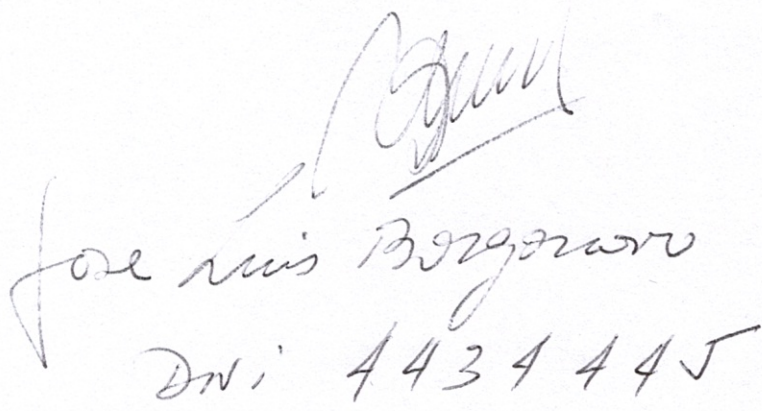 Jose Luis Borgonovo
DNi 4434445